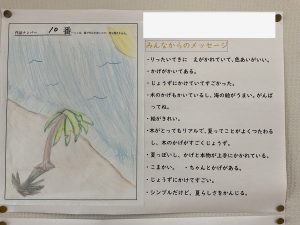 作品ナンバー 10 番
みんなからのメッセージ
・りったいてきに えがかれていて、色あいがいい。
・かげがかいてある。
・じょうずにかけていてすごかった。
・木のかげもかいているし、海の絵がうまい。がんば
ってね。
・絵がきれい。
・木がとってもリアルで、夏ってことがよくつたわる
し、木のかげがすごくじょうず。
・夏っぽいし、かげと本物が上手にかかれている。
・こまかい。 ・ちゃんとかげがある。
・じょうずにかけてすごい。
・シンプルだけど、夏らしさをかんじる。